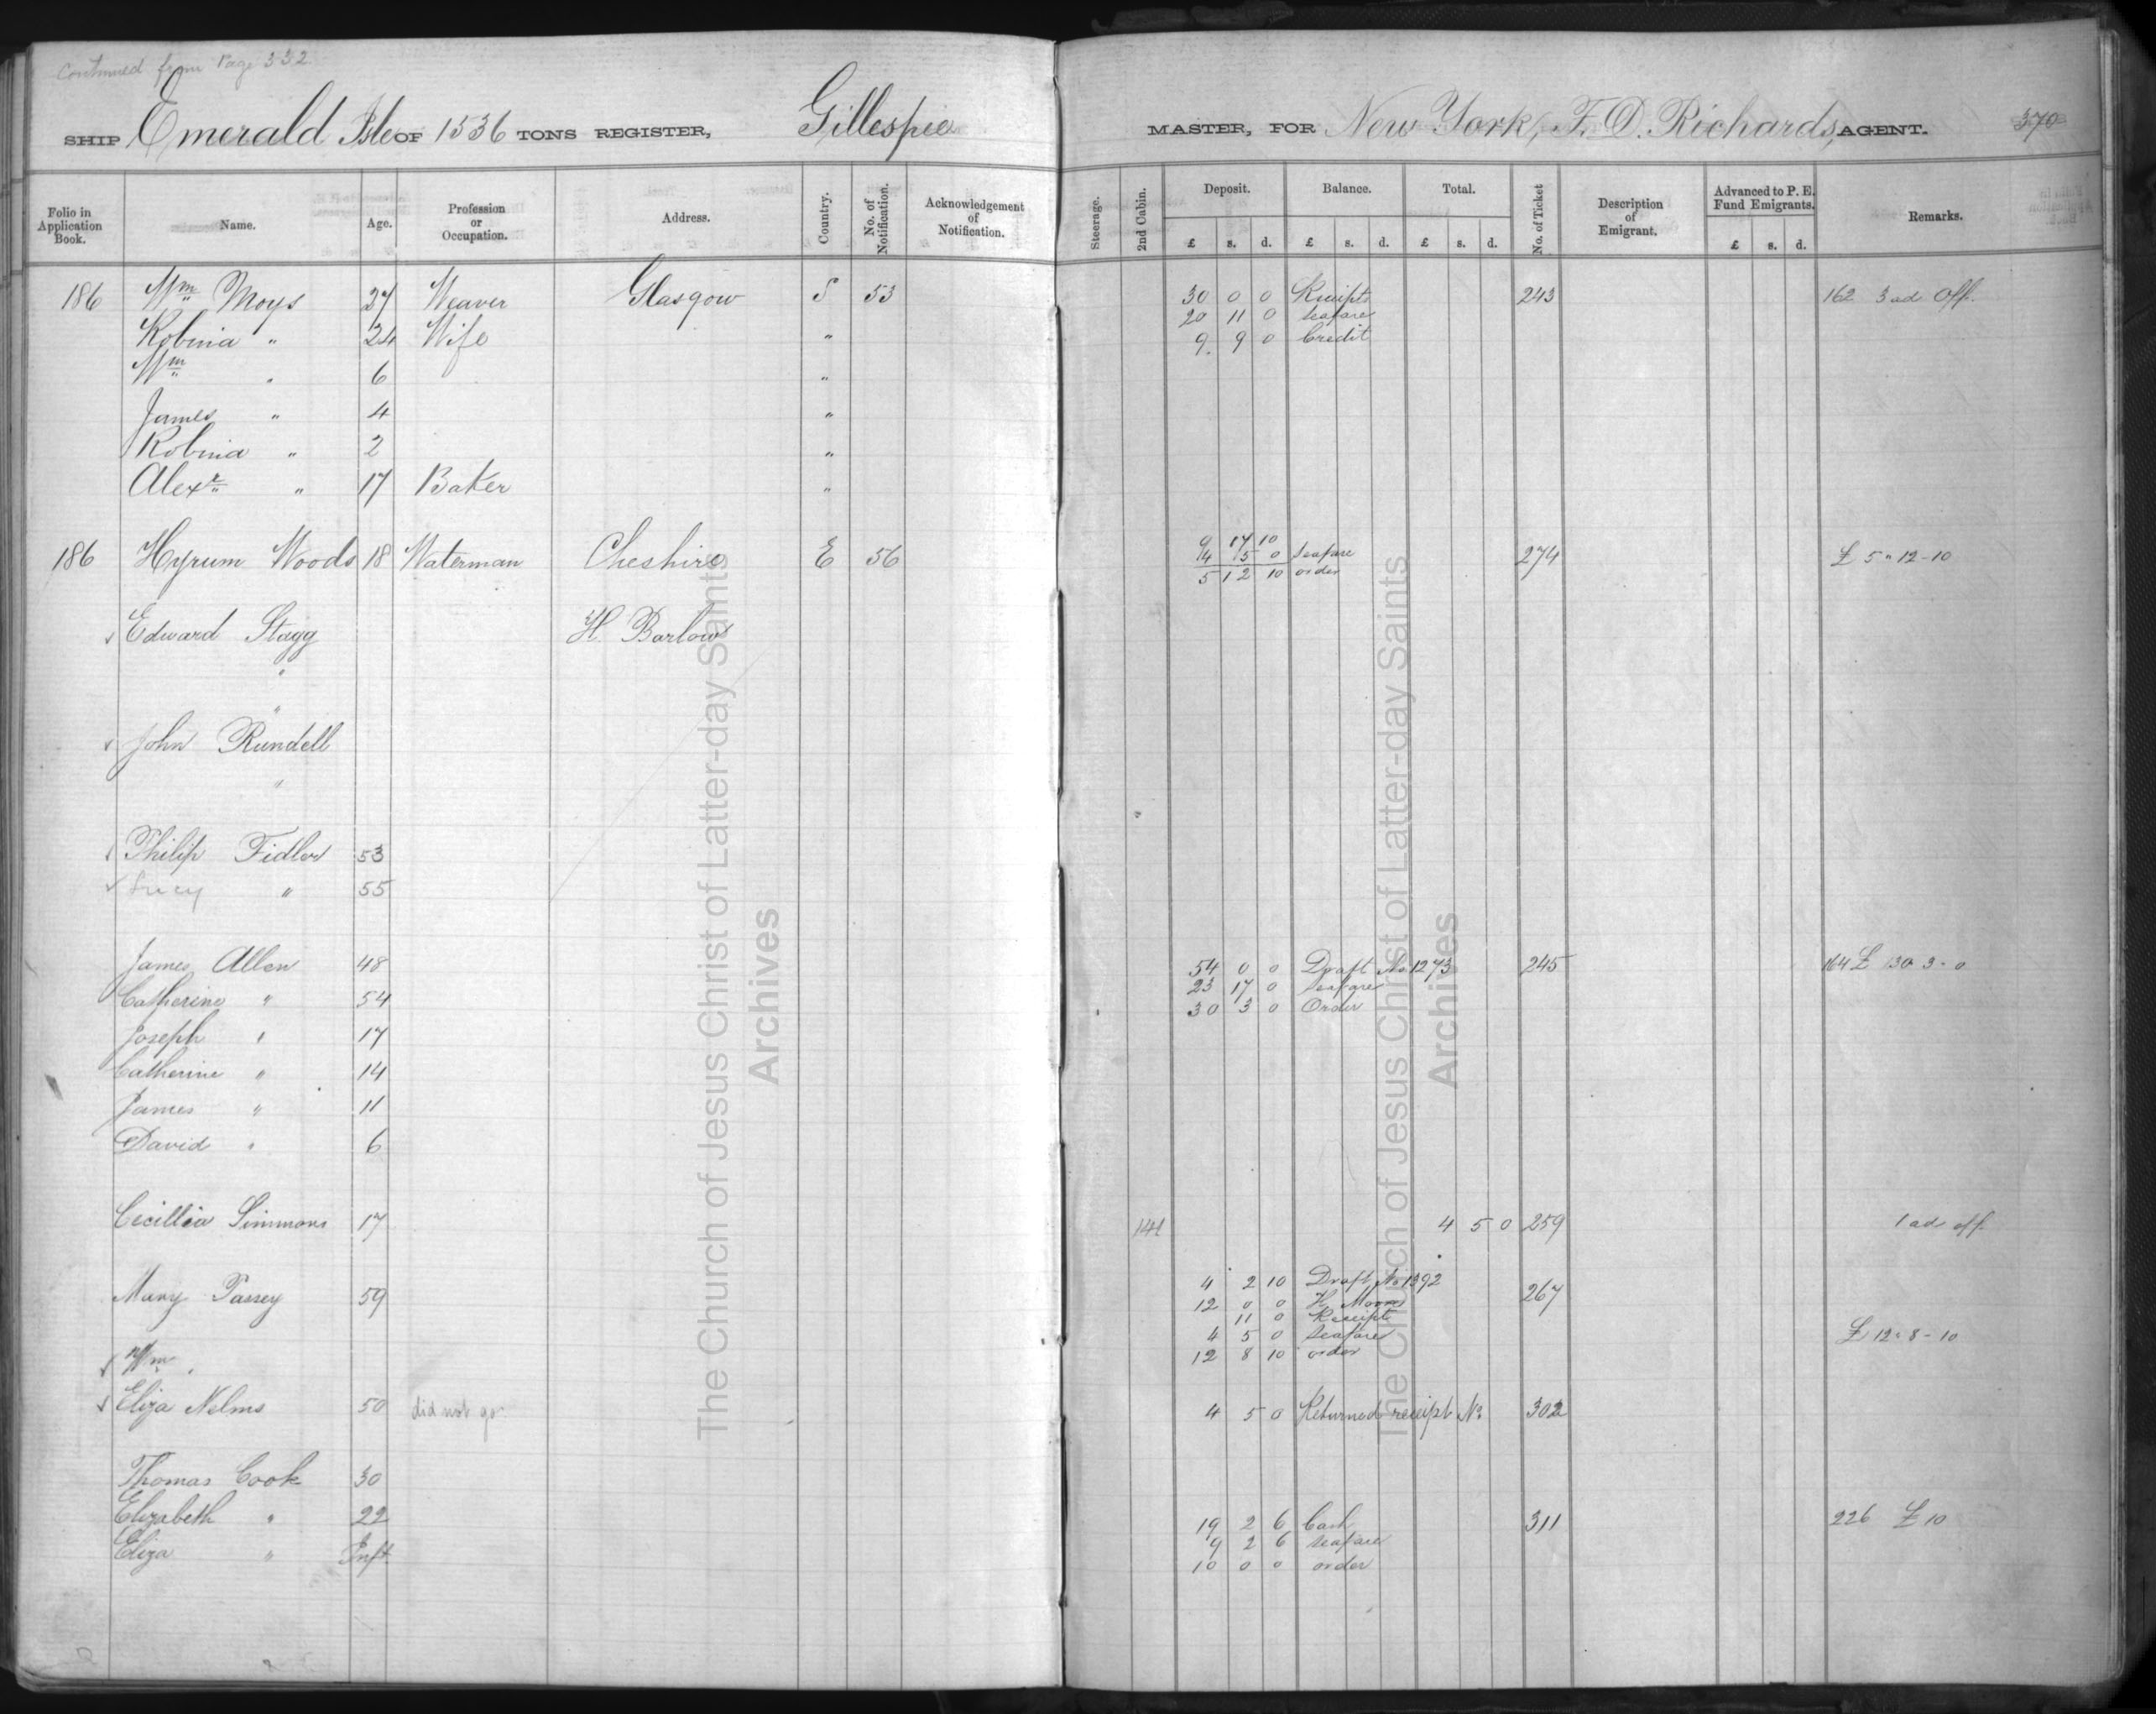 Continued from Page 332
SHIP Emerald Isle OF 1536 TONS REGISTER, Gillespie MASTER, FOR New York, F. D. Richards, AGENT. 370
Folio in Application Book. Name. Age. Profession or Occupation. Address. Country. No. of Notification. Acknowledgement of Notification. Steerage. 2nd Cabin. Deposit. £ s. d. Balance. £ s. d. Total. £ s. d. No. of Ticket Description of Emigrant. Advanced to P. E. Fund Emigrants. £ s. d. Remarks.
186 Wm Moys 27 Weaver Glasgow S 53 30 0 0 Receipts 243 162 3 ad Off.
20 11 0 seafare
Robina " 24 Wife " 9 9 0 Credit
Wm " 6 "
James " 4 "
Robina " 2 "
Alexr " 17 Baker "
9 17 10
186 Hyrum Woods 18 Waterman Cheshire E 56 4 5 0 seafare 274 £ 5 " 12 - 10
5 12 10 order
Edward Stagg H. Barlows
"
"
John Rundell
"
Philip Fidler 53
Lucy " 55
James Allen 48 54 0 0 Draft No 1273 245 164 £ 30 3 - 0
23 17 0 seafare
Catherine " 54 30 3 0 Order
Joseph " 17
Catherine " 14
James " 11
David " 6
Cecillia Simmons 17 141 4 5 0 259 1 ad off
4 2 10 Draft No 1392
Mary Passey 59 12 0 0 H. 267
11 0 Receipt
4 5 0 seafare £ 12 " 8 - 10
Wm 12 8 10 order
Eliza Nelms 50 did not go 4 5 0 Returned receipt No 302
Thomas Cook 30
Elizabeth " 22 19 2 6 Cash 311 226 £ 10
Eliza " Inft 9 2 6 seafare
10 0 0 order
The Church of Jesus Christ of Latter-day Saints
Archives
The Church of Jesus Christ of Latter-day Saints
Archives